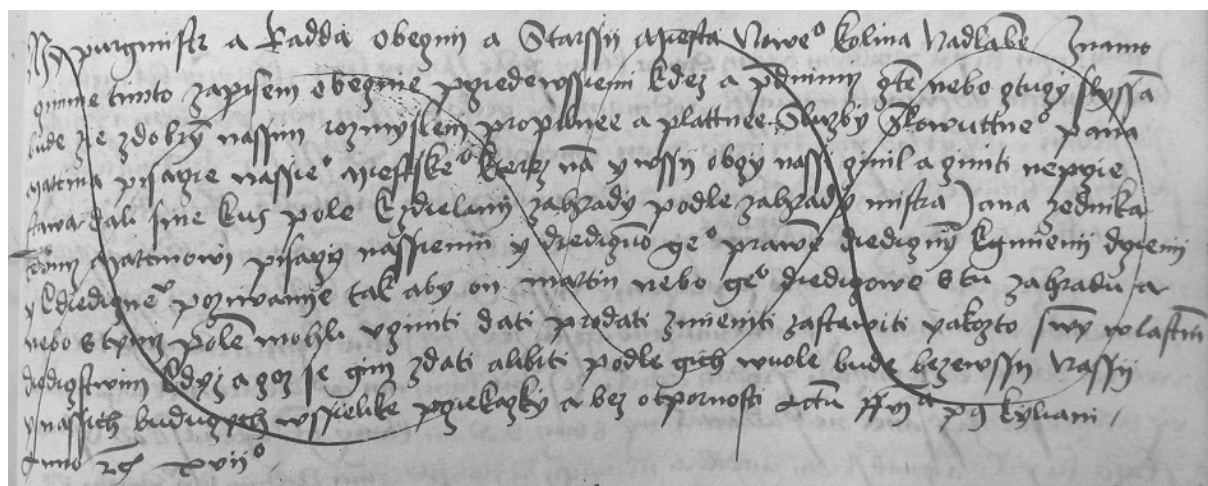 My purgmistr a Radda obeczni a Starssii Miesta Nowe° Kolina Nadlabē Znamo
cziníme tiemto zapisem obecznie przedewssiemi kdez a p̄d nimiz cztē nebo cztuczy slyssā
bude ze zdobrȳ nassim rozmyslem pro pilnee a platnee Sluzby Slowuttne° pana
Martina pisarzie nassie° Miestske° kterez nā y wssij obczy nassi czinil a cziniti neprzie
stawa dali sme kus pole k zdielanij zahrady podle zahrady mistra Jana zednika
Martinowi pisarzi nassiemu y diediczuō ge° prawē diedicznȳ k gmienij drzieni
y k diediczne° pozywanije tak aby on Martin nebo ge° diediczowe s tu zahradu a
nebo s tijm polē mohli vcziniti dati prodati zmieniti zastawiti yakozto swȳ wlastnim
diediczstwim kdyz a coz se gim zdati a libiti podle gich wuole bude bezewssij Nassij
y nassich buduczych wssielike przekazky a bez otpornosti Actū ff vi ᵃ p9 kyliani
Anno xvii°